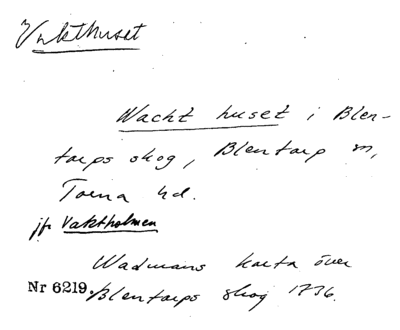 Vakthuset
Wacht huset i Blen-
tarps skog, Blentarp sn,
Torna hd.
jfr Vaktholmen
Wadmans karta över
Nr 6219. Blentarps skog 1736.